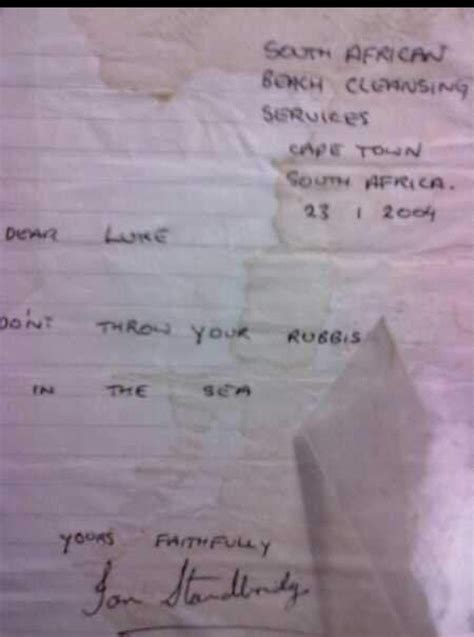 SOUTH AFRICAN
BEACH CLEANSING
SERVICES
CAPE TOWN
SOUTH AFRICA.
23 1 2004
DEAR LUKE
DON'T THROW YOUR RUBBIS
IN THE SEA
YOURS FAITHFULLY
Ian